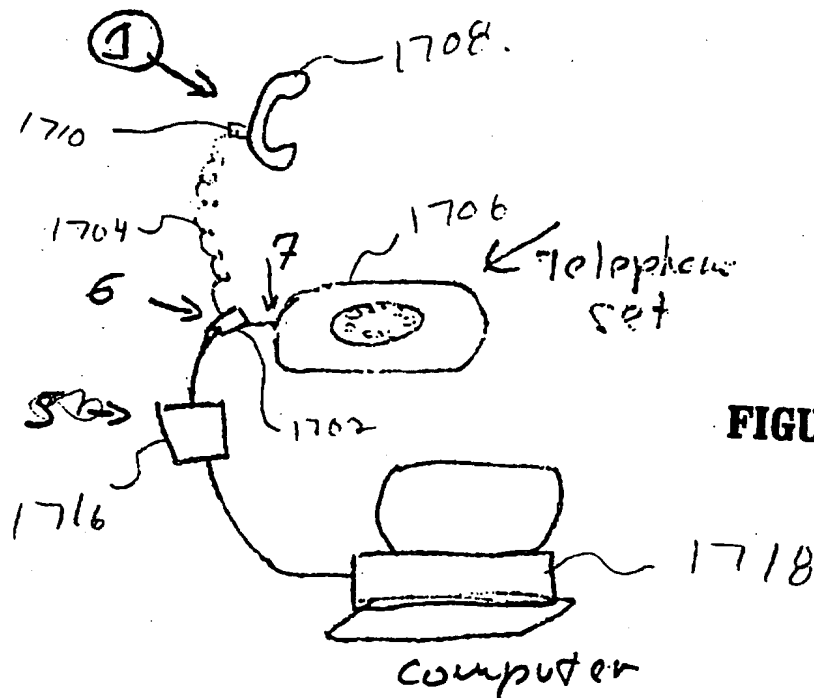 1
1708.
1710
1704
1706
7
Telephone
set
6
1702
1716
FIGU
1718
computer